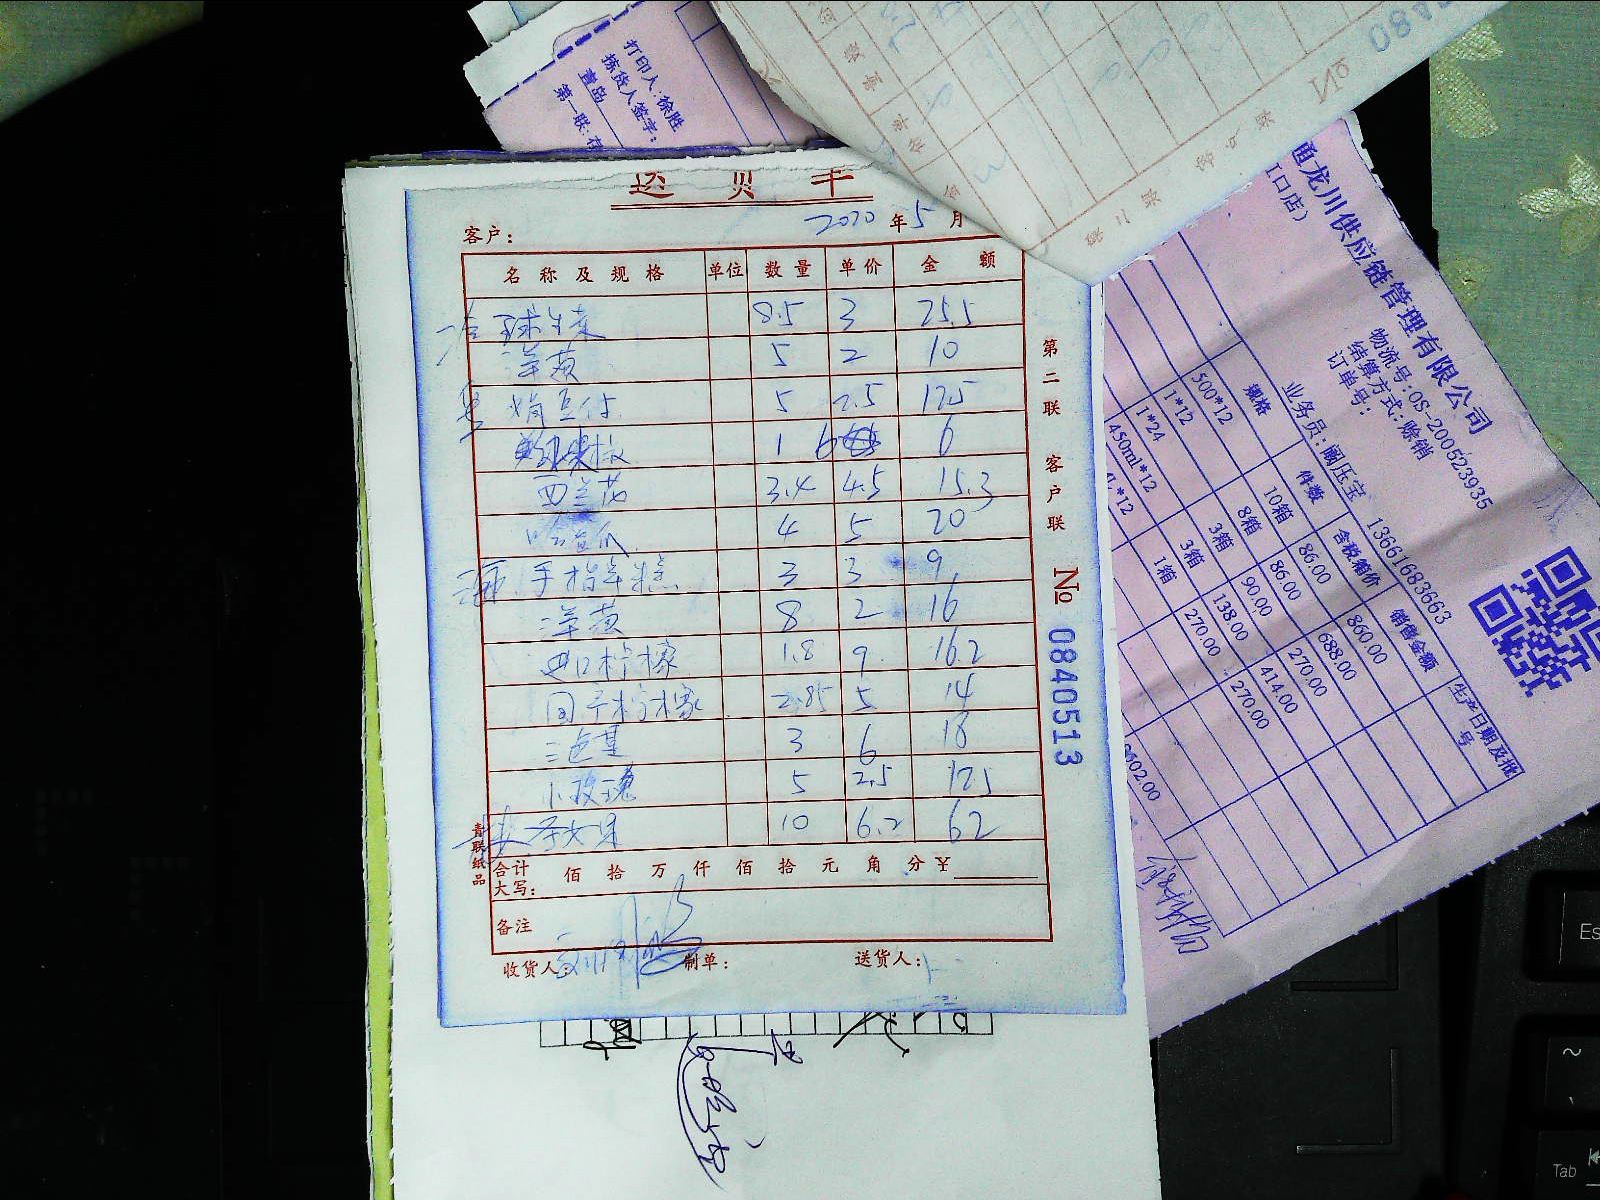 打印人:徐胜
拣货人签字:
青岛
第一联:存
No
080
送货单
2020 年 5 月
客户:
名称及规格 单位 数量 单价 金额
冷 球生菜 8.5 3 25.5
洋葱 5 2 10
5 2.5 12.5
1 6 6
西兰花 3.4 4.5 15.3
哈密瓜 4 5 20
手指年糕 3 3 9
洋葱 8 2 16
进口柠檬 1.8 9 16.2
国产柠檬 2.85 5 14
三色堇 3 6 18
小玫瑰 5 2.5 12.5
10 6.2 62
合计大写: 佰 拾 万 仟 佰 拾 元 角 分 ¥
备注
收货人: 制单: 送货人:
青联纸品
第二联 客户联 No 0840513
通龙川供应链管理有限公司
口店)
物流号:OS-200523935
结算方式:赊销
订单号:
业务员:阚压宝 13661683663
规格 件数 含税箱价 销售金额 生产日期及批号
500*12 10箱 86.00 860.00
1*12 8箱 86.00 688.00
1*24 3箱 90.00 270.00
450ml*12 3箱 138.00 414.00
L*12 1箱 270.00 270.00
2502.00
Es
~
Tab